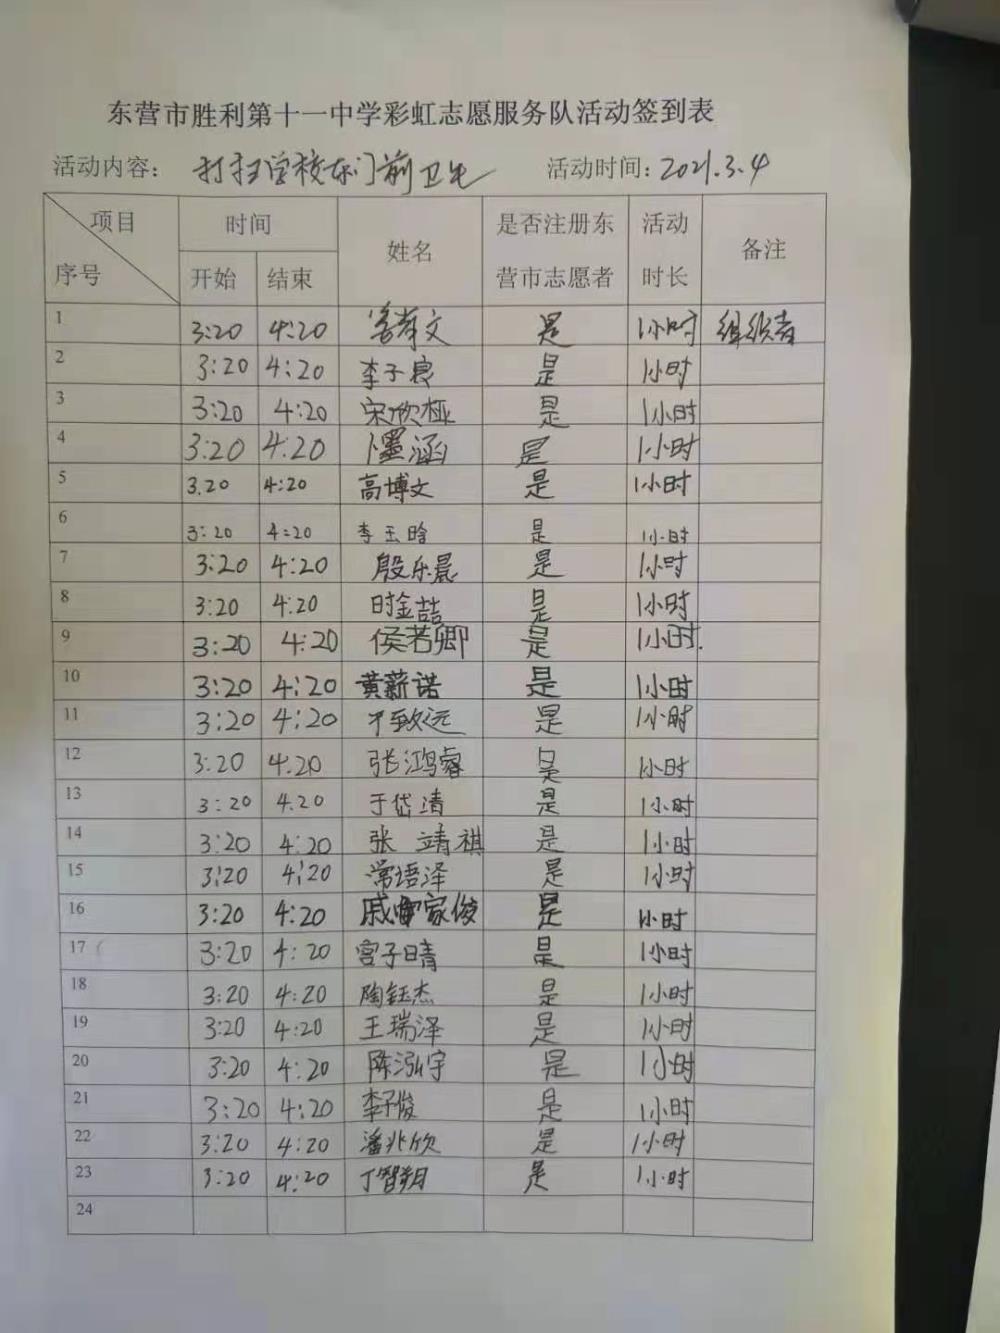 东营市胜利第十一中学彩虹志愿服务队活动签到表
活动内容： 打扫学校东门前卫生 活动时间：2021.3.4
项目 时间 姓名 是否注册东营市志愿者 活动时长 备注
序号 开始 结束
1 3:20 4:20 文 是 1小时 组织者
2 3:20 4:20 李子良 是 1小时
3 3:20 4:20 宋欣桠 是 1小时
4 3:20 4:20 墨涵 是 1小时
5 3.20 4:20 高博文 是 1小时
6 3:20 4:20 李玉晗 是 1小时
7 3:20 4:20 殷乐晨 是 1小时
8 3:20 4:20 时金喆 是 1小时
9 3:20 4:20 侯若卿 是 1小时.
10 3:20 4:20 黄薪诺 是 1小时
11 3:20 4:20 致远 是 1小时
12 3:20 4.20 张鸿睿 是 1小时
13 3:20 4.20 于岱清 是 1小时
14 3:20 4:20 张靖祺 是 1小时
15 3:20 4:20 常语泽 是 1小时
16 3:20 4:20 戚家俊 是 1小时
17 3:20 4:20 宫子晴 是 1小时
18 3:20 4:20 陶钰杰 是 1小时
19 3:20 4:20 王瑞泽 是 1小时
20 3:20 4:20 陈泓宇 是 1小时
21 3:20 4:20 李子俊 是 1小时
22 3:20 4:20 潘兆欣 是 1小时
23 3:20 4:20 丁智翔 是 1小时
24